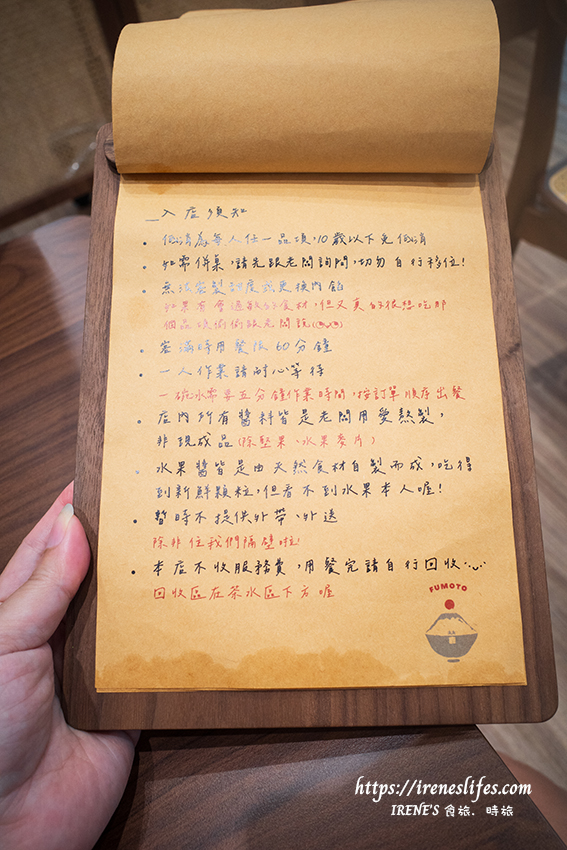 _入店須知
• 低消為每人任一品項,10歲以下免低消
• 如需併桌,請先跟老闆詢問,切勿自行移位!
• 無法客製甜度或更換內餡
如果有會過敏的食材,但又真的很想吃那
個品項偷偷跟老闆說
• 客滿時用餐限60分鐘
• 一人作業請耐心等待
一碗冰需要五分鐘作業時間,按訂單順序出餐
• 店內所有醬料皆是老闆用愛熬製,
非現成品(除堅果、水果麥片)
• 水果醬皆是由天然食材自製而成,吃得
到新鮮顆粒,但看不到水果本人喔!
• 暫時不提供外帶、外送
除非住我們隔壁啦!
• 本店不收服務費,用餐完請自行回收
回收區在茶水區下方喔
FUMOTO
https://ireneslifes.com
IRENE'S 食旅.時旅